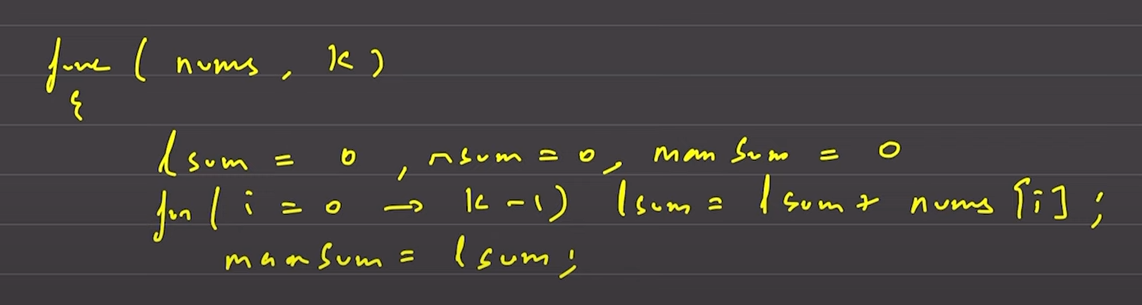 func ( nums , k )
{
lsum = 0 , rsum = 0, maxsum = 0
for ( i = 0 → k - 1 ) lsum = lsum + nums [i] ;
maxsum = lsum ;